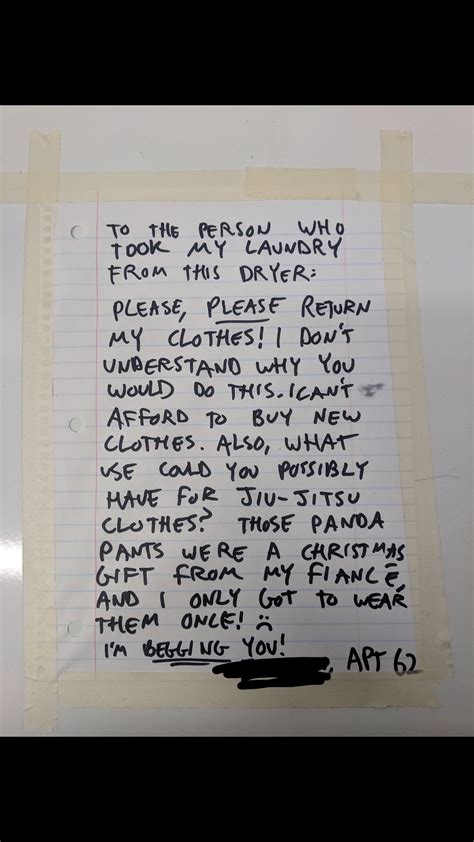 TO THE PERSON WHO
TOOK MY LAUNDRY
FROM THIS DRYER:
PLEASE, PLEASE RETURN
MY CLOTHES! I DON'T
UNDERSTAND WHY YOU
WOULD DO THIS. I CAN'T
AFFORD TO BUY NEW
CLOTHES. ALSO, WHAT
USE COULD YOU POSSIBLY
HAVE FOR JIU-JITSU
CLOTHES? THOSE PANDA
PANTS WERE A CHRISTMAS
GIFT FROM MY FIANCÉ,
AND I ONLY GOT TO WEAR
THEM ONCE! ☹
I'M BEGGING YOU!
, APT 62